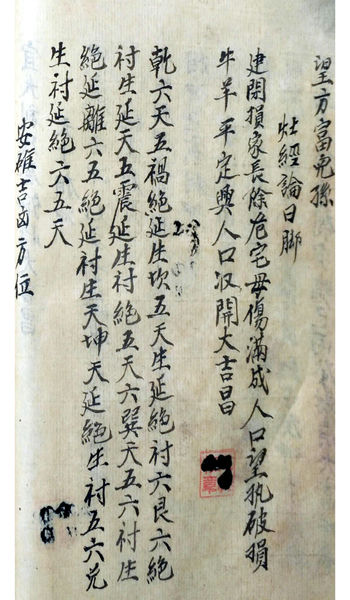 望方富児孫
灶經論日脚
建閉損家長除危宅母傷滿成人口望執破損
牛羊平定興人口収開大吉昌
乾六天五禍絕延生坎五天生延絕衬六艮六絕
衬生延天五震延生衬絕五天六巽天五六衬生
絕延離六五絕延衬生天坤天延絕生衬五六兌
生衬延絕六五天
安碓吉凶方位